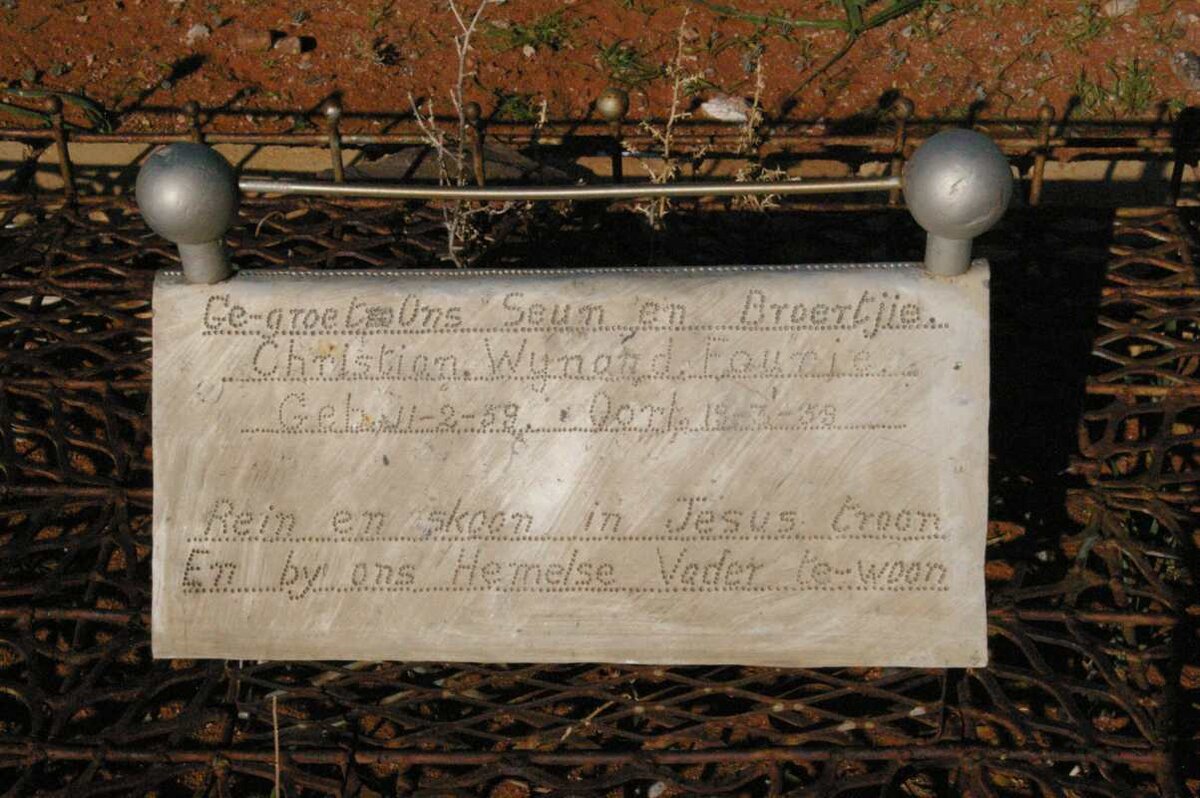 Ge-groet Ons Seun en Broertjie.
Christian. Wynand. Fourie.
Geb. 11-2-59. Oorl.
Rein en skoon in Jesus troon
En by ons Hemelse Vader te-woon